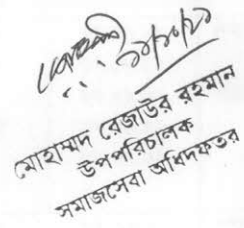 ১৮/১০/২১
মোহাম্মদ রেজাউর রহমান
উপপরিচালক
সমাজসেবা অধিদফতর